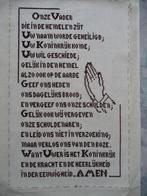 Onze Vader
die in de hemelen zijt
Uw naam worde geheiligd;
Uw Koninkrijk kome;
Uw wil geschiede;
gelijk in den hemel
alzoo ook op de aarde
Geef ons heden
ons dagelijks brood;
en vergeef ons onze schulden,
Gelijk ook wij vergeven
onze schuldenaren;
en leid ons niet in verzoeking;
maar verlos ons van den boze.
Want Uwer is het Koninkrijk
en de kracht en de heerlijkheid
in der eeuwigheid. AMEN